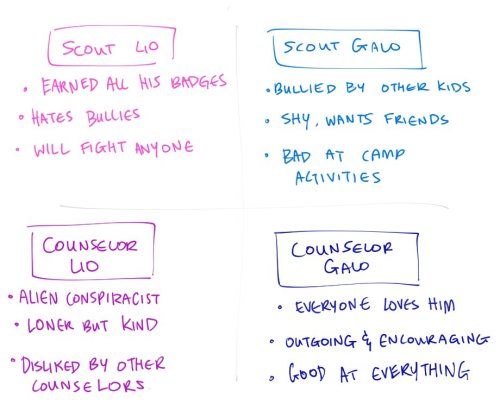 SCOUT LIO
• EARNED ALL HIS BADGES
• HATES BULLIES
• WILL FIGHT ANYONE
SCOUT GALO
• BULLIED BY OTHER KIDS
• SHY, WANTS FRIENDS
• BAD AT CAMP
ACTIVITIES
COUNSELOR
LIO
• ALIEN CONSPIRACIST
• LONER BUT KIND
• DISLIKED BY OTHER
COUNSELORS
COUNSELOR
GALO
• EVERYONE LOVES HIM
• OUTGOING & ENCOURAGING
• GOOD AT EVERYTHING